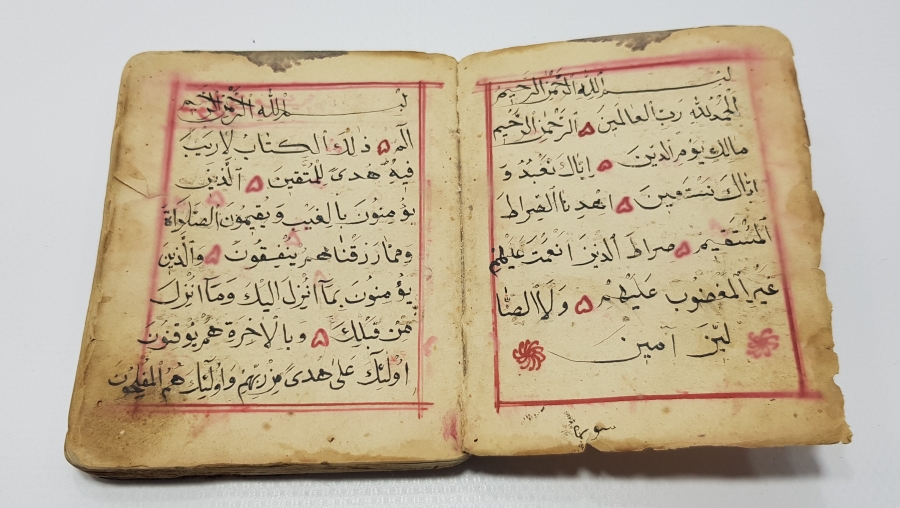 بسم الله الرحمن الرحيم
الحمد لله رب العالمين ۵ الرحمن الرحيم
مالك يوم الدين ۵ اياك نعبد و
اياك نستعين ۵ اهدنا الصراط
المستقيم ۵ صراط الذين انعمت عليهم
غير المغضوب عليهم ۵ ولا الضا
لين آمين
بسم الله الرحمن الرحيم
الم ۵ ذلك الكتاب لاريب
فيه هدى للمتقين ۵ الذين
يؤمنون بالغيب ويقيمون الصلوة
ومما رزقناهم ينفقون ۵ والذين
يؤمنون بمآ انزل اليك ومآ انزل
من قبلك ۵ وبالاخرة هم يوقنون
اولئك على هدى من ربهم واولئك هم المفلحون